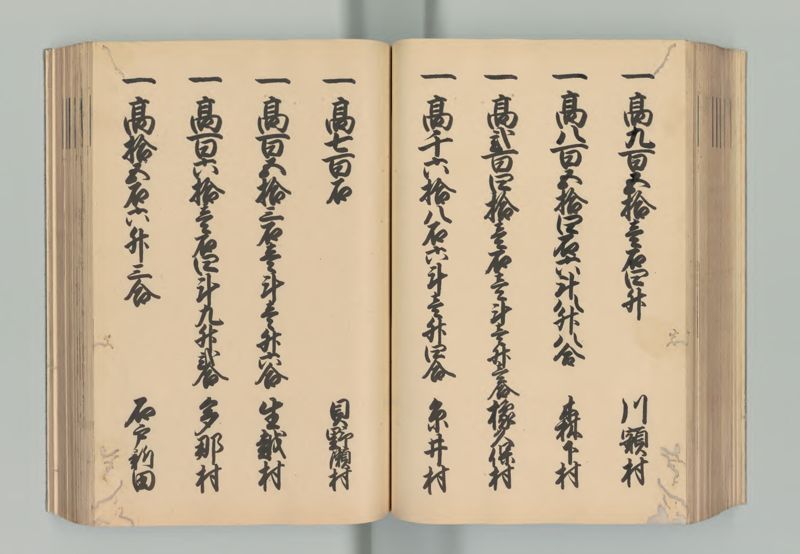 一 高九百五拾壱石四升 川額村
一 高八百五拾四石六斗八升八合 森下村
一 高弐百四拾壱石壱斗壱升壱合 橡久保村
一 高千六拾八石六斗壱升四合 糸井村
一 高七百石 貝野瀬村
一 高百五拾三石壱斗壱升六合 生越村
一 高百六拾壱石四斗九升弐合 多那村
一 高拾五石六升三合 石戸新田